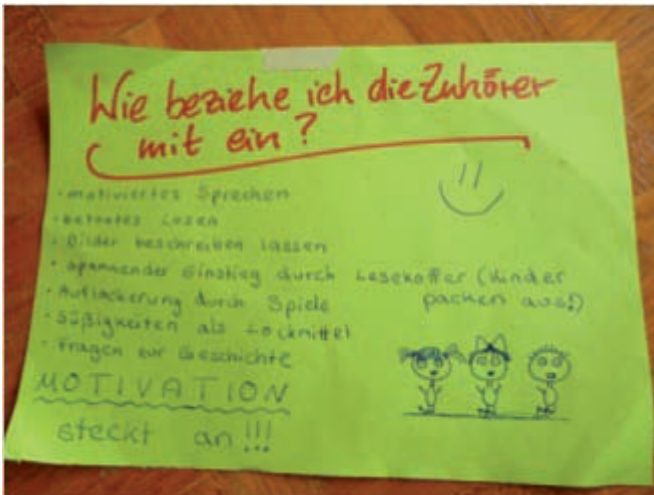 Wie beziehe ich die Zuhörer
mit ein?
· motiviertes Sprechen
· betontes Lesen
· Bilder beschreiben lassen
· spannender Einstieg durch Lesekoffer (Kinder
packen aus!)
· Auflockerung durch Spiele
· Süßigkeiten als Lockmittel
· Fragen zur Geschichte
MOTIVATION
steckt an!!!